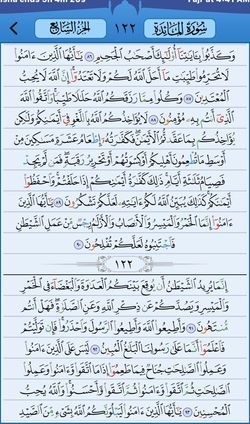 سُورَةُ المَائِدَةِ ١٢٢ الجُزْءُ السَّابِعُ
وَكَذَّبُوا۟ بِـَٔايَٰتِنَآ أُو۟لَٰٓئِكَ أَصْحَٰبُ ٱلْجَحِيمِ ٨٦ يَٰٓأَيُّهَا ٱلَّذِينَ ءَامَنُوا۟
لَا تُحَرِّمُوا۟ طَيِّبَٰتِ مَآ أَحَلَّ ٱللَّهُ لَكُمْ وَلَا تَعْتَدُوٓا۟ إِنَّ ٱللَّهَ لَا يُحِبُّ
ٱلْمُعْتَدِينَ ٨٧ وَكُلُوا۟ مِمَّا رَزَقَكُمُ ٱللَّهُ حَلَٰلًا طَيِّبًا وَٱتَّقُوا۟ ٱللَّهَ
ٱلَّذِىٓ أَنتُم بِهِۦ مُؤْمِنُونَ ٨٨ لَا يُؤَاخِذُكُمُ ٱللَّهُ بِٱللَّغْوِ فِىٓ أَيْمَٰنِكُمْ وَلَٰكِن
يُؤَاخِذُكُم بِمَا عَقَّدتُّمُ ٱلْأَيْمَٰنَ فَكَفَّٰرَتُهُۥٓ إِطْعَامُ عَشَرَةِ مَسَٰكِينَ مِنْ
أَوْسَطِ مَا تُطْعِمُونَ أَهْلِيكُمْ أَوْ كِسْوَتُهُمْ أَوْ تَحْرِيرُ رَقَبَةٍ فَمَن لَّمْ يَجِدْ
فَصِيَامُ ثَلَٰثَةِ أَيَّامٍ ذَٰلِكَ كَفَّٰرَةُ أَيْمَٰنِكُمْ إِذَا حَلَفْتُمْ وَٱحْفَظُوٓا۟
أَيْمَٰنَكُمْ كَذَٰلِكَ يُبَيِّنُ ٱللَّهُ لَكُمْ ءَايَٰتِهِۦ لَعَلَّكُمْ تَشْكُرُونَ ٨٩ يَٰٓأَيُّهَا ٱلَّذِينَ
ءَامَنُوٓا۟ إِنَّمَا ٱلْخَمْرُ وَٱلْمَيْسِرُ وَٱلْأَنصَابُ وَٱلْأَزْلَٰمُ رِجْسٌ مِّنْ عَمَلِ ٱلشَّيْطَٰنِ
فَٱجْتَنِبُوهُ لَعَلَّكُمْ تُفْلِحُونَ ٩٠
١٢٢
إِنَّمَا يُرِيدُ ٱلشَّيْطَٰنُ أَن يُوقِعَ بَيْنَكُمُ ٱلْعَدَٰوَةَ وَٱلْبَغْضَآءَ فِى ٱلْخَمْرِ
وَٱلْمَيْسِرِ وَيَصُدَّكُمْ عَن ذِكْرِ ٱللَّهِ وَعَنِ ٱلصَّلَوٰةِ فَهَلْ أَنتُم
مُّنتَهُونَ ٩١ وَأَطِيعُوا۟ ٱللَّهَ وَأَطِيعُوا۟ ٱلرَّسُولَ وَٱحْذَرُوا۟ فَإِن تَوَلَّيْتُمْ
فَٱعْلَمُوٓا۟ أَنَّمَا عَلَىٰ رَسُولِنَا ٱلْبَلَٰغُ ٱلْمُبِينُ ٩٢ لَيْسَ عَلَى ٱلَّذِينَ ءَامَنُوا۟
وَعَمِلُوا۟ ٱلصَّٰلِحَٰتِ جُنَاحٌ فِيمَا طَعِمُوٓا۟ إِذَا مَا ٱتَّقَوا۟ وَّءَامَنُوا۟ وَعَمِلُوا۟
ٱلصَّٰلِحَٰتِ ثُمَّ ٱتَّقَوا۟ وَّءَامَنُوا۟ ثُمَّ ٱتَّقَوا۟ وَّأَحْسَنُوا۟ وَٱللَّهُ يُحِبُّ
ٱلْمُحْسِنِينَ ٩٣ يَٰٓأَيُّهَا ٱلَّذِينَ ءَامَنُوا۟ لَيَبْلُوَنَّكُمُ ٱللَّهُ بِشَىْءٍ مِّنَ ٱلصَّيْدِ